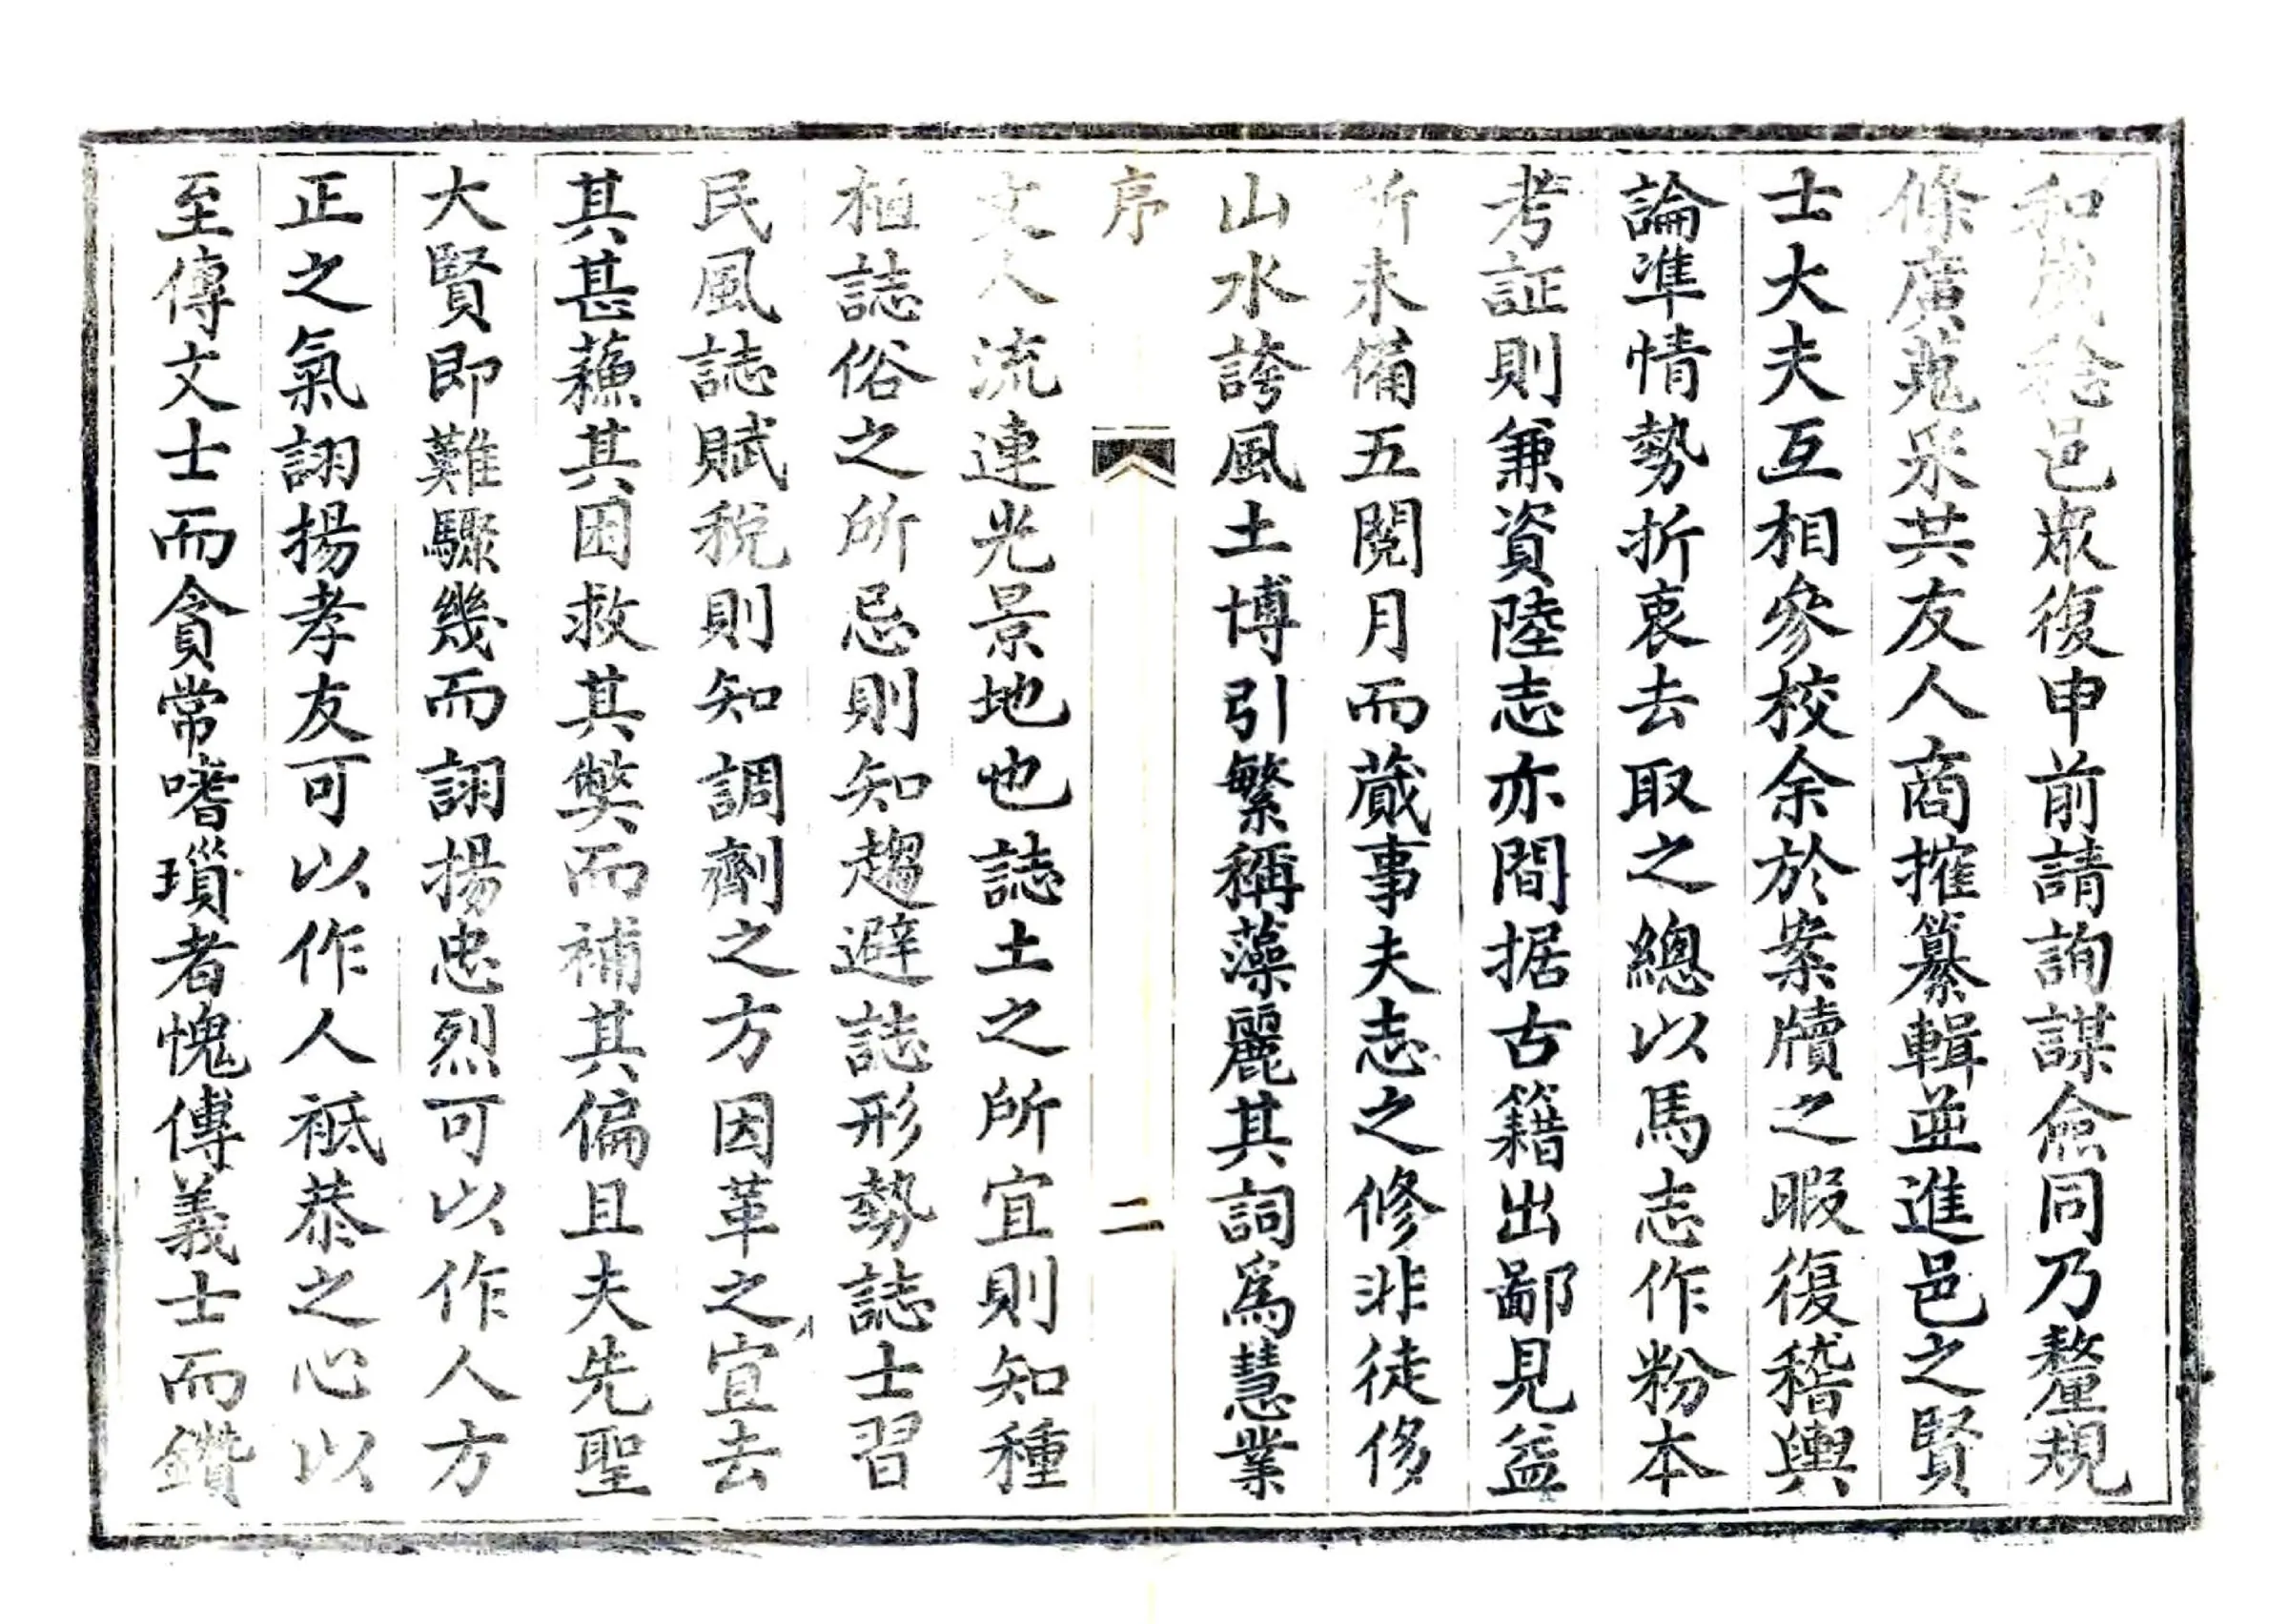 和歲稔邑眾復申前請詢謀僉同乃釐規
條廣蒐采共友人商搉纂輯並進邑之賢
士大夫互相參校余於案牘之暇復稽輿
論準情勢折衷去取之總以馬志作粉本
考証則兼資陸志亦間据古籍出鄙見益
所未備五閱月而蕆事夫志之修非徒侈
山水誇風土博引繁稱藻麗其詞爲慧業
序 二
文人流連光景地也誌土之所宜則知種
植誌俗之所忌則知趨避誌形勢誌士習
民風誌賦稅則知調劑之方因革之宜去
其甚蘇其困救其獘而補其偏且夫先聖
大賢即難驟幾而詡揚忠烈可以作人方
正之氣詡揚孝友可以作人祗恭之心以
至傳文士而貪常嗜瑣者愧傳義士而鑽